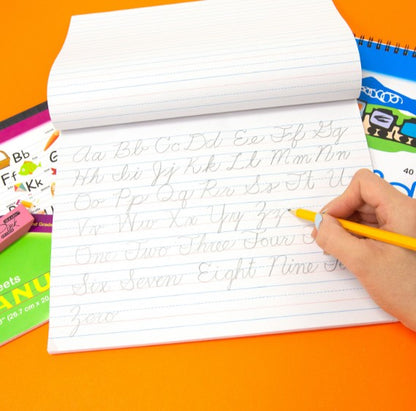 Aa Bb Cc Dd Ee Ff Gg
Hh Ii Jj Kk Ll Mm Nn
Oo Pp Qq Rr Ss Tt U
Vv Ww Xx Yy Zz
One Two Three Four
Six Seven Eight Nine
Zero
Bb
Ff
Kk
heets
ANU
40